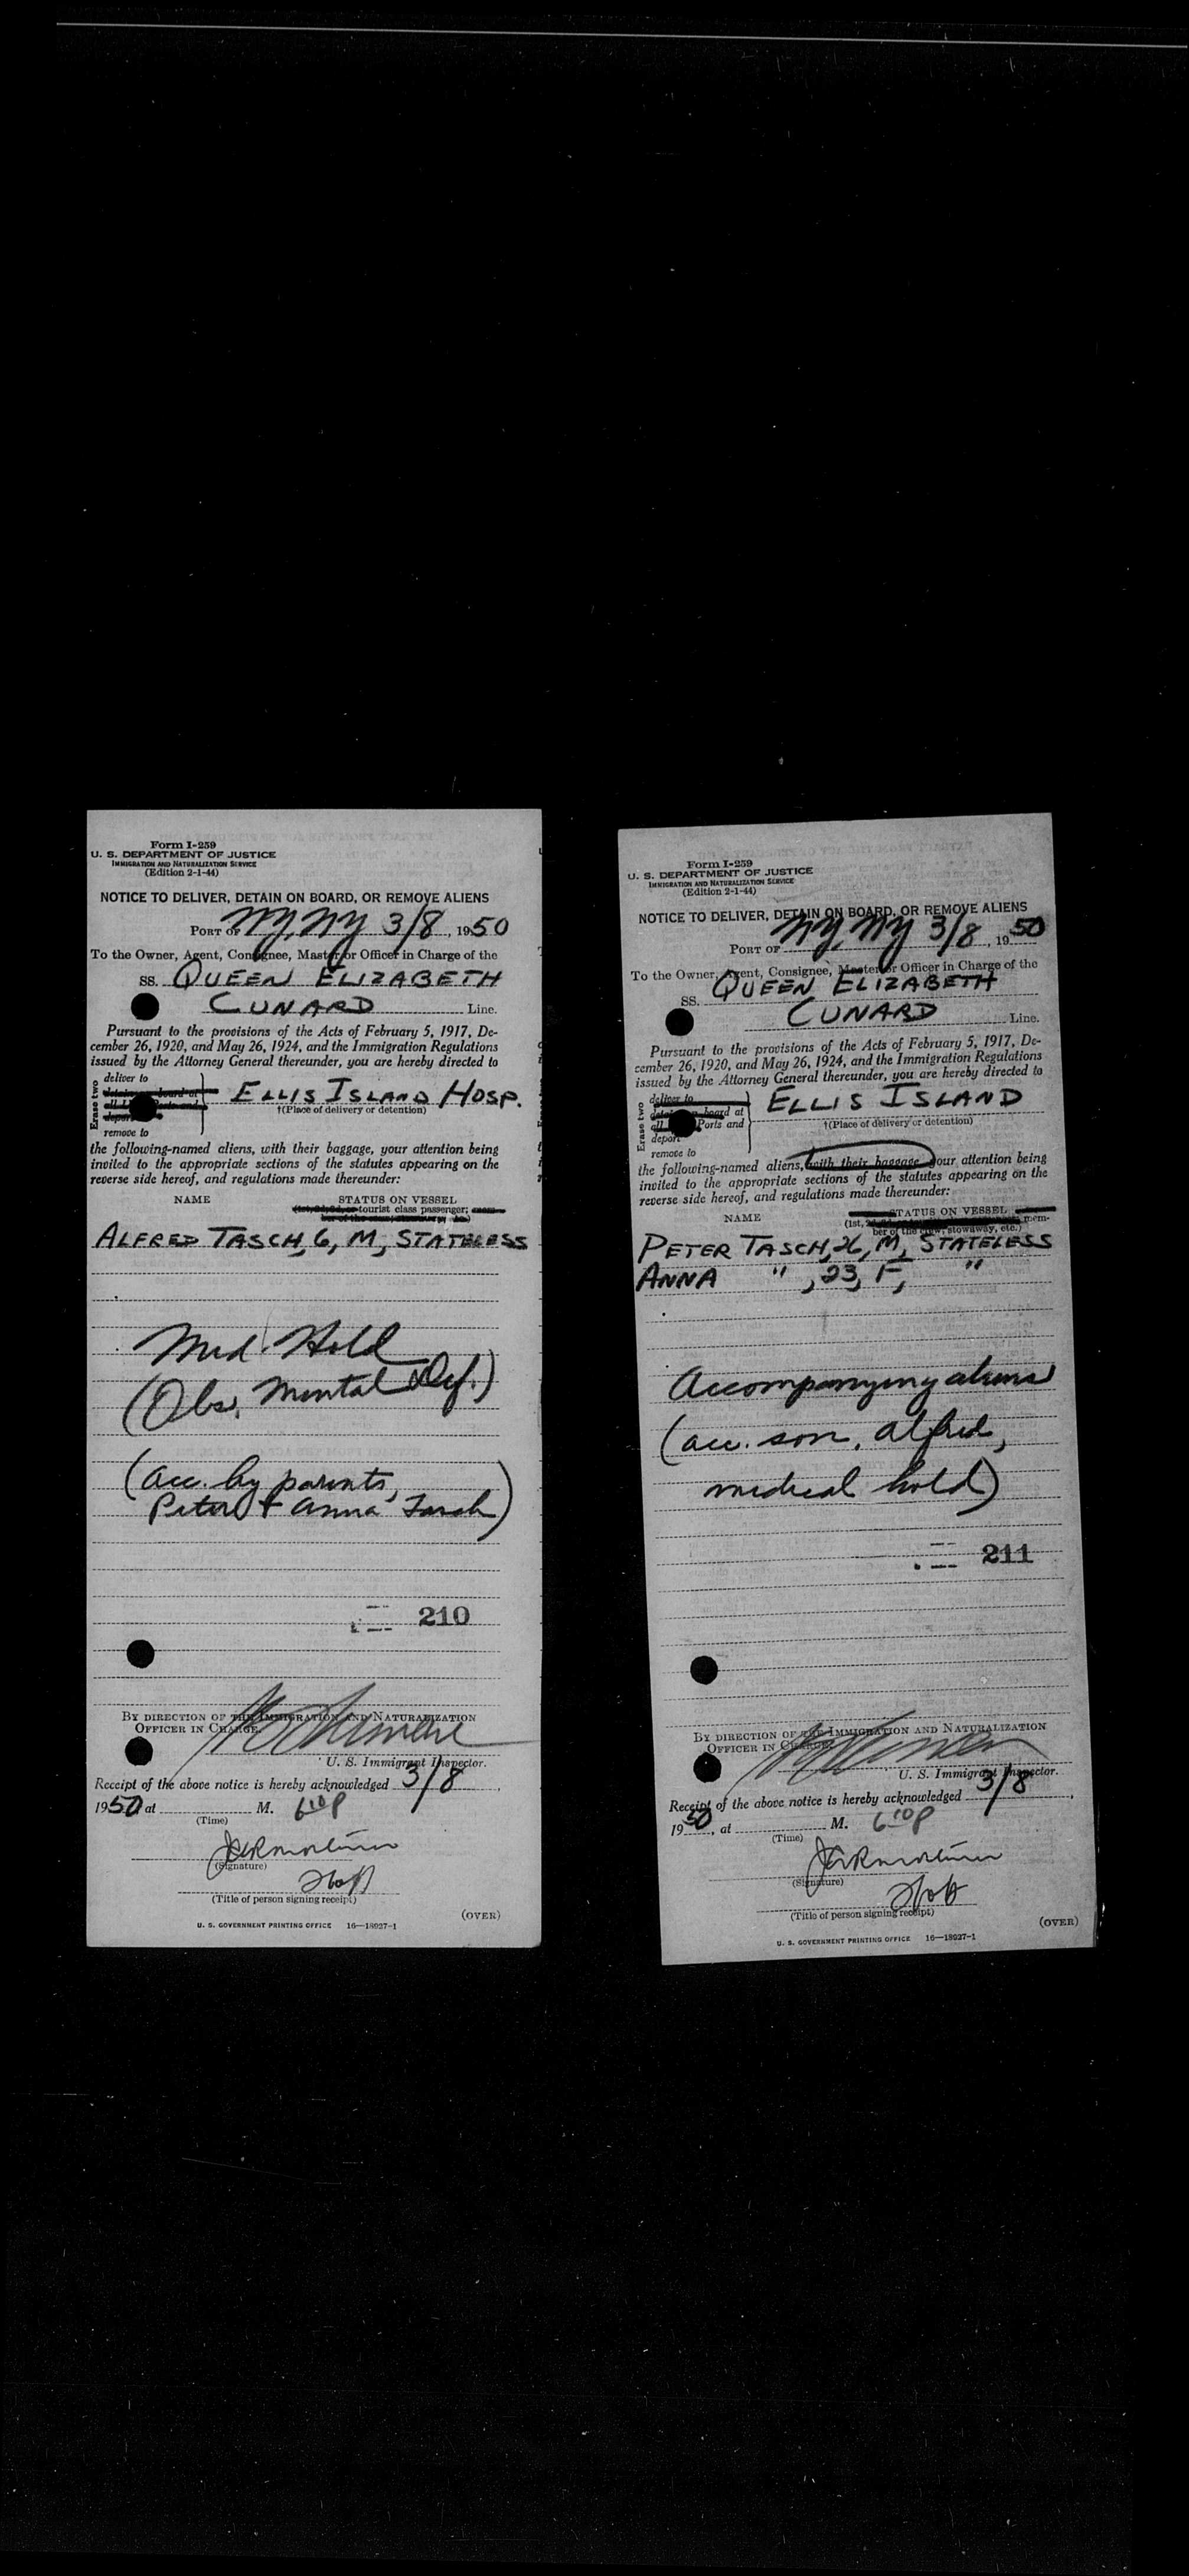 Form I-259
U. S. DEPARTMENT OF JUSTICE
IMMIGRATION AND NATURALIZATION SERVICE
(Edition 2-1-44)
NOTICE TO DELIVER, DETAIN ON BOARD, OR REMOVE ALIENS
PORT OF NY, NY 3/8, 1950
To the Owner, Agent, Consignee, Master or Officer in Charge of the
SS. QUEEN ELIZABETH
CUNARD Line.
Pursuant to the provisions of the Acts of February 5, 1917, De-
cember 26, 1920, and May 26, 1924, and the Immigration Regulations
issued by the Attorney General thereunder, you are hereby directed to
Erase two
deliver to
ELLIS ISLAND HOSP.
†(Place of delivery or detention)
remove to
the following-named aliens, with their baggage, your attention being
invited to the appropriate sections of the statutes appearing on the
reverse side hereof, and regulations made thereunder:
NAME STATUS ON VESSEL
tourist class passenger;
ALFRED TASCH, 6, M, STATELESS
Med. Hold
(Obs. Mental Def.)
(acc. by parents,
Peter + Anna Tasch)
210
BY DIRECTION OF THE IMMIGRATION AND NATURALIZATION
OFFICER IN CHARGE.
U. S. Immigrant Inspector.
Receipt of the above notice is hereby acknowledged 3/8,
1950 at M. 6 10 P
(Time)
(Signature)
(Title of person signing receipt)
(OVER)
U. S. GOVERNMENT PRINTING OFFICE 16—18927-1
Form I-259
U. S. DEPARTMENT OF JUSTICE
IMMIGRATION AND NATURALIZATION SERVICE
(Edition 2-1-44)
NOTICE TO DELIVER, DETAIN ON BOARD, OR REMOVE ALIENS
PORT OF NY, NY 3/8, 1950
To the Owner, Agent, Consignee, Master or Officer in Charge of the
SS. QUEEN ELIZABETH
CUNARD Line.
Pursuant to the provisions of the Acts of February 5, 1917, De-
cember 26, 1920, and May 26, 1924, and the Immigration Regulations
issued by the Attorney General thereunder, you are hereby directed to
Erase two
deliver to
board at
Ports and
deport
ELLIS ISLAND
†(Place of delivery or detention)
remove to
the following-named aliens, with their baggage, your attention being
invited to the appropriate sections of the statutes appearing on the
reverse side hereof, and regulations made thereunder:
NAME STATUS ON VESSEL
(1st, mem-
ber of the crew, stowaway, etc.)
PETER TASCH, 26, M, STATELESS
ANNA " , 23, F, "
Accompanying aliens
(acc. son, Alfred,
medical hold)
211
BY DIRECTION OF THE IMMIGRATION AND NATURALIZATION
OFFICER IN CHARGE.
U. S. Immigrant Inspector.
Receipt of the above notice is hereby acknowledged 3/8,
1950, at M. 6 10 P
(Time)
(Signature)
(Title of person signing receipt)
(OVER)
U. S. GOVERNMENT PRINTING OFFICE 16—18927-1